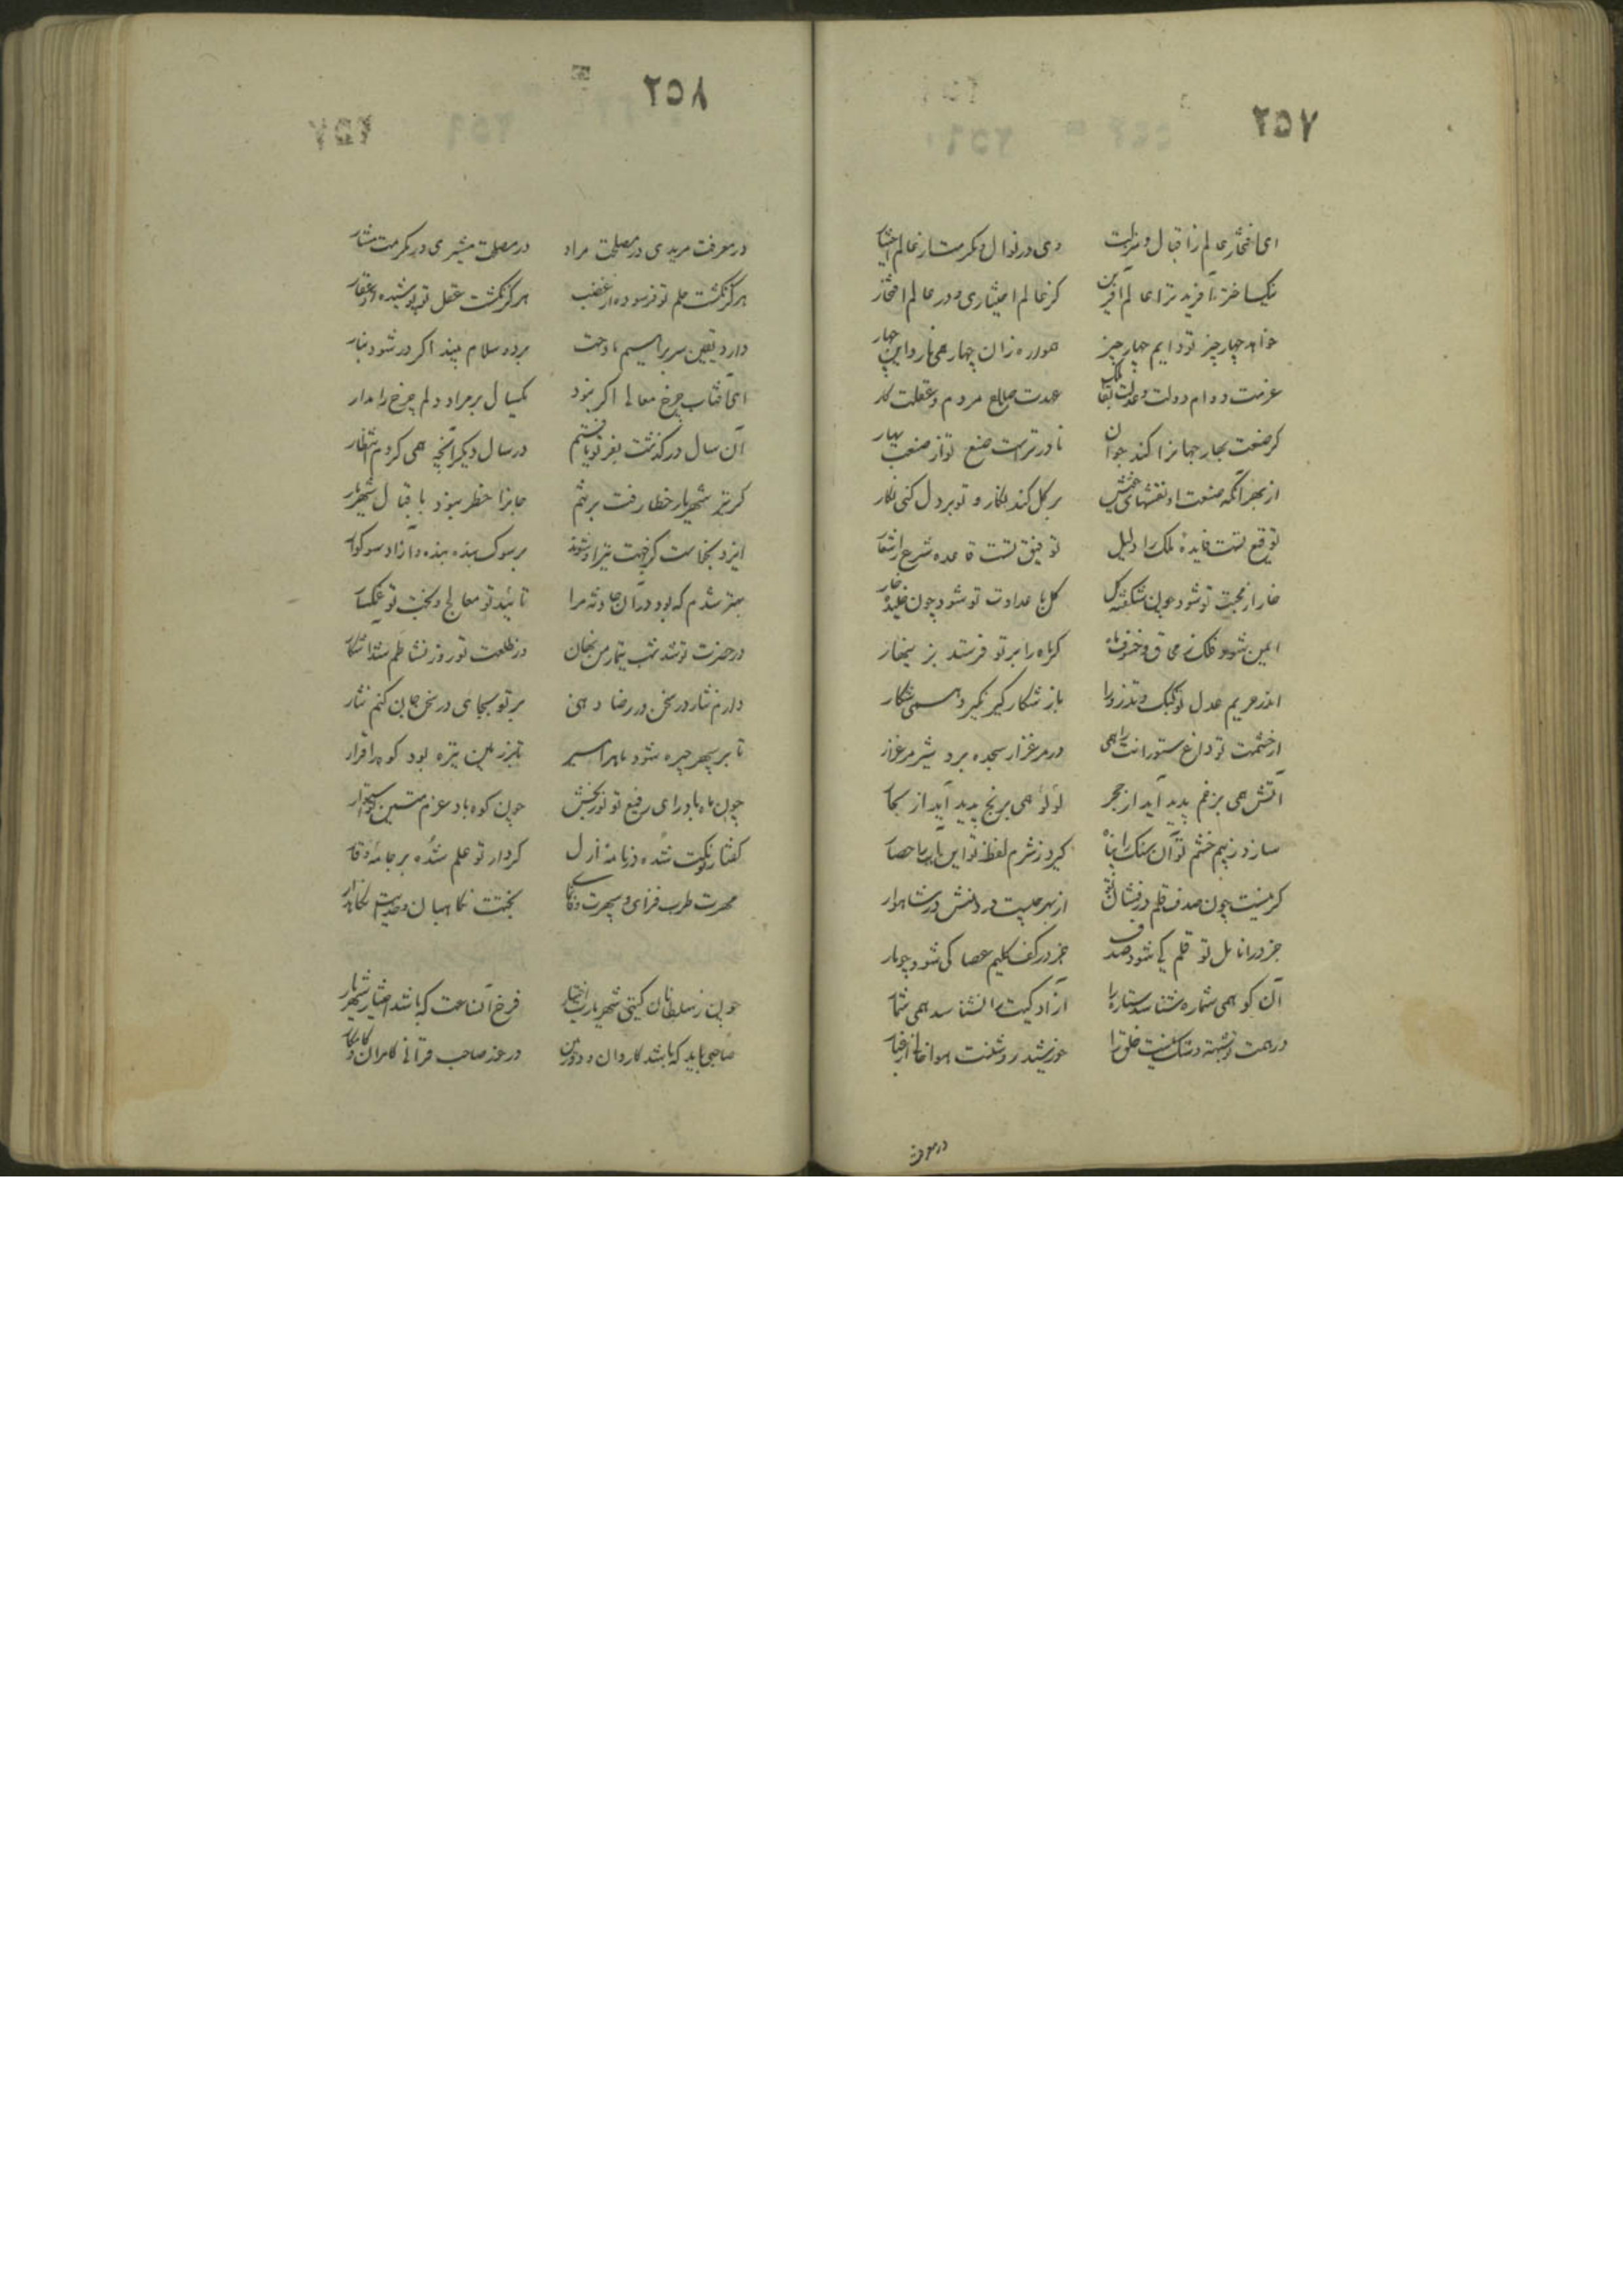 ٢٥٧
ای افتخار عالم از اقبال و منزلت
وی در نوال و مکرمت از عالم اختیار
یکساختر نآفرید ترا عالم آفرین
کز عالم اختیاری و در عالم افتخار
خواهد چهار چیز تو دایم چهار چیز
همواره زان چهار همی نازد این چهار
عزمت دوام دولت و عدلت بقا
عهدت صلاح مردم و عقلت
کر صنعت بهار جهانرا کند جوان
نادرتر است صنع تو از صنعت بهار
از بهر آنکه صنعت او نقشهای خوش
بر کل کند نکار و تو بر دل کنی نکار
توقیع تست فایدهٔ ملک را دلیل
توفیق تست قاعده شرع را شعار
خار از محبت تو شود چون شکفته کل
کل با عداوت تو شود چون خلیده خار
ایمن شود فلک ز محاق و خسوف ماه
کر ماه را بر تو فرستد بزینهار
اندر حریم عدل تو کبک و تذرو را
باز شکار کیر نکیرد همی شکار
از حشمت تو داغ ستورانت را همی
در مرغزار سجده برد شیر مرغزار
آتش همی بزخم پدید آید از حجر
لؤلؤ همی برنج پدید آید از بحار
سازد ز بیم خشم تو آن سنک را پناه
کیرد ز شرم لفظ تو این آب را حصار
کر نیست چون صدف قلم درفشان تو
از بهر چیست در دهنش در شاهوار
جز در انامل تو قلم کی شود صدف
جز در کف کلیم عصا کی شود چو مار
آن کو همی شماره شناسد ستاره را
آزاد کیت را نشناسد همی شمار
در همت تو شبهت و شک نیست خلق را
خورشید روشنست هوا خالی از غبار
در معرفت
٢٥٨
در معرفت مریدی و در مصلحت مراد
در مصلحت مشیری و در مکرمت مشار
هرکز نکشت حلم تو فرسوده از غضب
هرکز نکشت عقل تو پوشیده از عقار
دارد یقین سر براهیم مادحت
برده سلام بیند اکر در شود بنار
ای آفتاب چرخ معالی اکر نبود
یکسال بر مراد دلم چرخ را مدار
آن سال در کذشت بفر تو یافتم
در سال دیکر آنچه همی کردم انتظار
کر تیر شهریار خطا رفت بر تنم
جانرا خطر نبود باقبال شهریار
ایزد نخواست کز جهت تیر او شوند
بر سوک بنده بنده و آزاد سوکوار
بهتر شدم که بود در آن حادثه مرا
تائید تو معالج و بخت تو غمکسار
در حضرت تو شد شب تیمار من نهان
در طلعت تو روز نشاطم شد آشکار
دارم نثار در سخن در رضا دهی
بر تو بجای در سخن جان کنم نثار
تا بر سپهر چیره شود ماه را مسیر
تا بر زمین تیره بود کوه را قرار
چون ماه باد رای رفیع تو نوربخش
چون کوه باد عزم متین تو استوار
کفتار نکوت شده در نامهٔ ازل
کردار تو علم شده بر جامهٔ وقار
مهرت طرب فزای و سپهرت
بختت نکاهبان و خدایت نکاهدار
چون ز سلطانان کیتی شهریارست اختیار
فرخ آن ساعت که باشد اختیار شهریار
صاحبی باید که باشد کاردان و دوربین
در خور صاحب قرانی کامران و کامکار